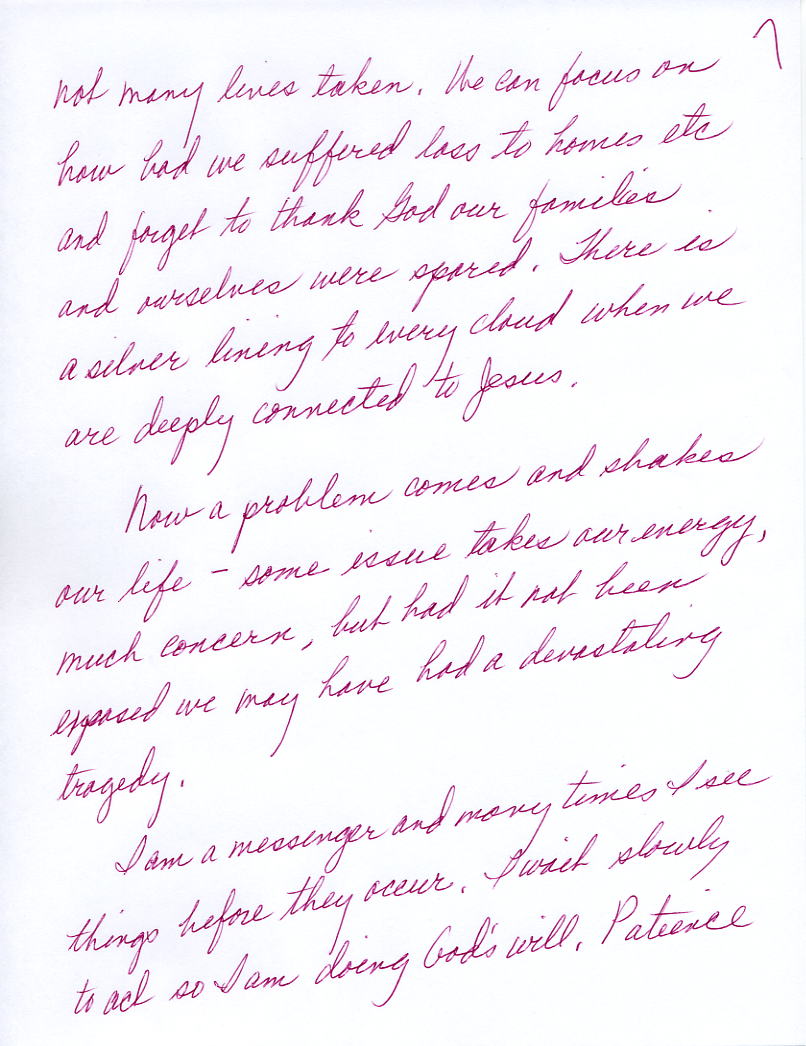 7
not many lives taken. We can focus on
how bad we suffered loss to homes etc
and forget to thank God our families
and ourselves were spared. There is
a silver lining to every cloud when we
are deeply connected to Jesus.
Now a problem comes and shakes
our life – some issue takes our energy,
much concern, but had it not been
exposed we may have had a devastating
tragedy.
I am a messenger and many times I see
things before they occur. I wait slowly
to act so I am doing God's will. Patience